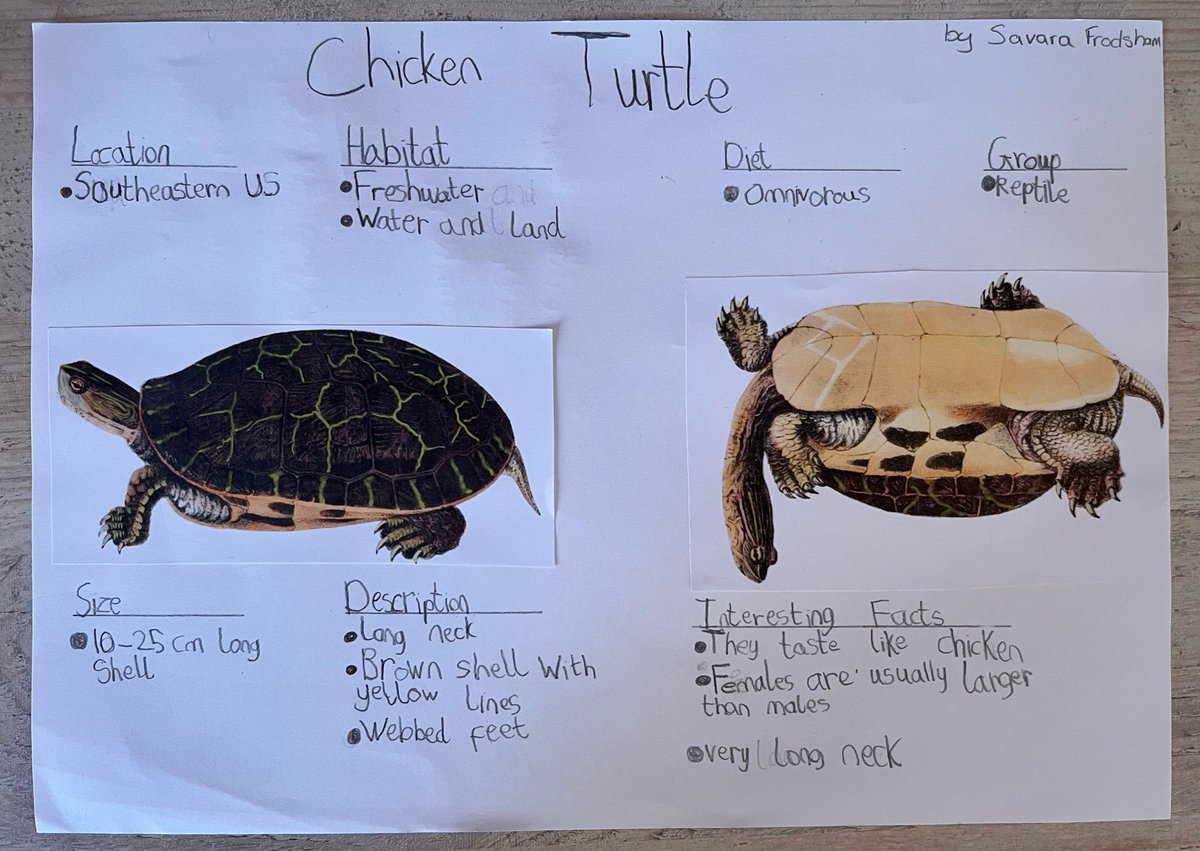 Chicken Turtle
by Savara Frodsham
Location
• Southeastern US
Habitat
• Freshwater
• Water and Land
Diet
• Omnivorous
Group
• Reptile
Size
• 10-25 cm long
Shell
Description
• Long neck
• Brown shell With
yellow lines
• Webbed feet
Interesting Facts
• They taste like chicken
• Females are usually larger
than males
• very long neck